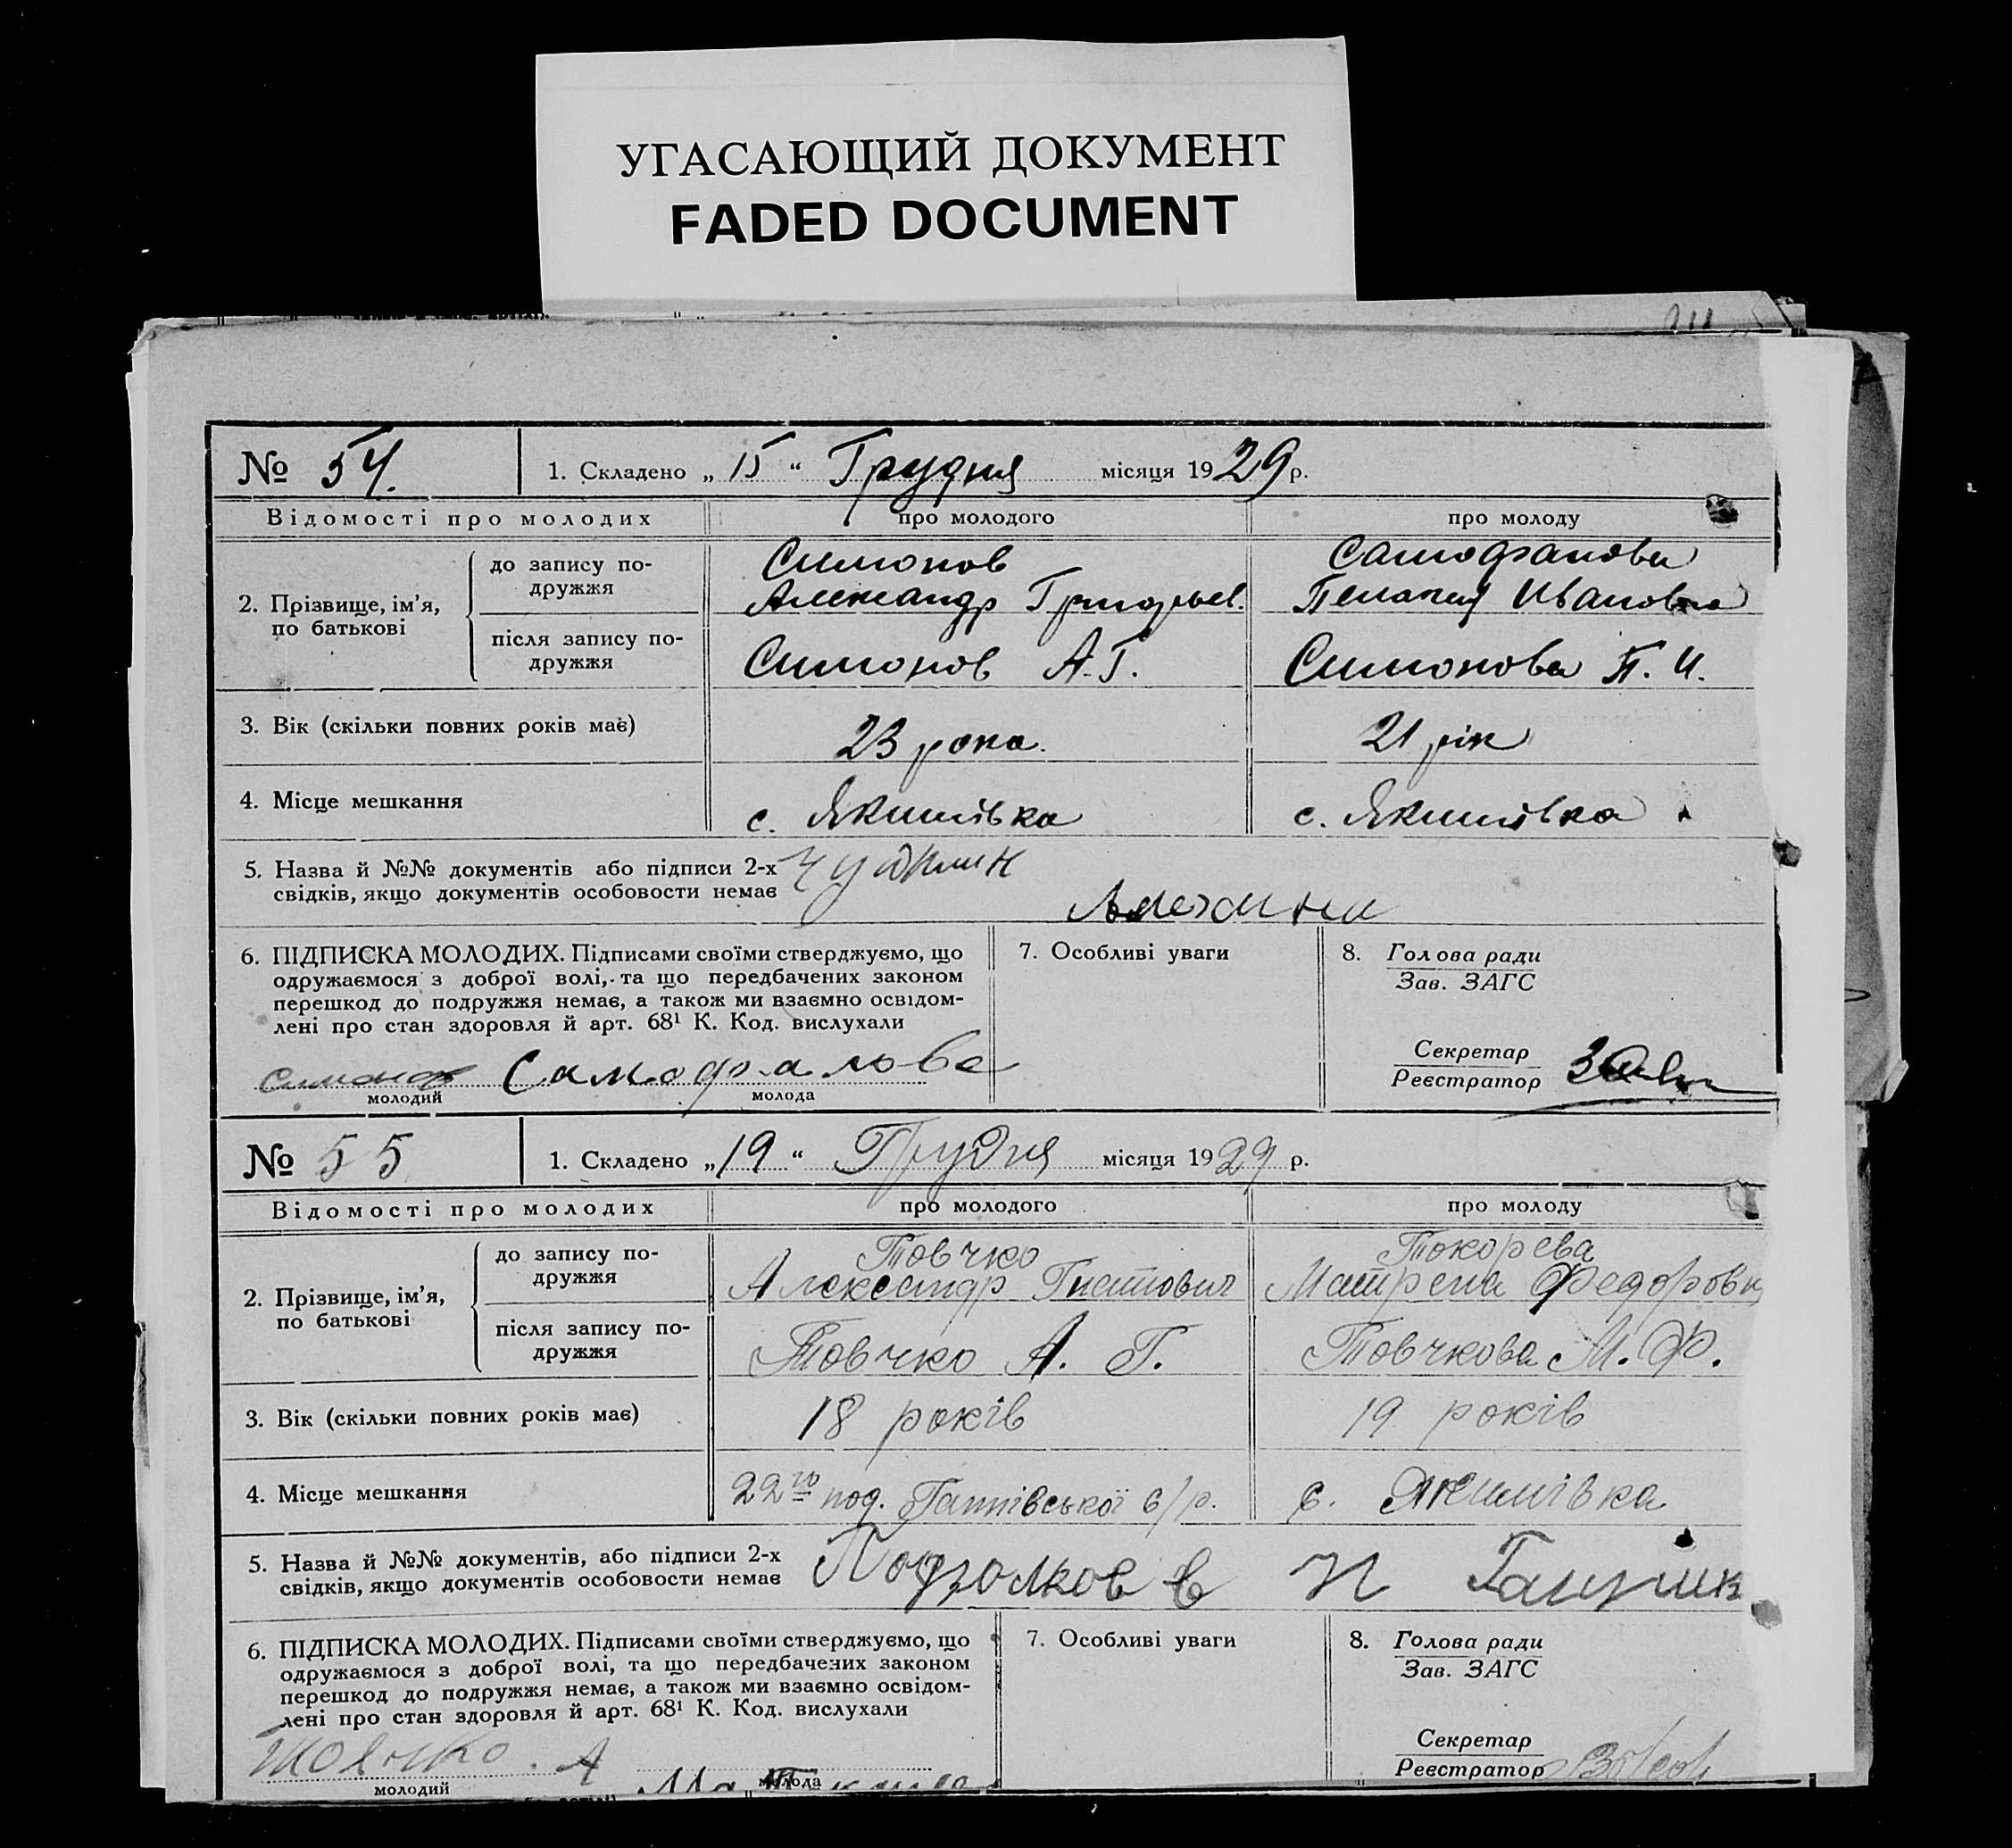 УГАСАЮЩИЙ ДОКУМЕНТ
FADED DOCUMENT
№ 54.
1. Складено „ 15 “ Грудня місяця 1929 р.
Відомості про молодих
про молодого
про молоду
2. Прізвище, ім’я, по батькові
до запису по-
дружжя
Симонов
Александр Григорьев.
Самофалова
Пелагия Ивановна
після запису по-
дружжя
Симонов А.Г.
Симонова П. И.
3. Вік (скільки повних років має)
23 рока.
21 рік
4. Місце мешкання
с. Якимівка
с. Якимівка
5. Назва й №№ документів або підписи 2-х
свідків, якщо документів особовости немає
6. ПІДПИСКА МОЛОДИХ. Підписами своїми стверджуємо, що
одружаємося з доброї волі, та що передбачених законом
перешкод до подружжя немає, а також ми взаємно освідом-
лені про стан здоровля й арт. 68¹ К. Код. вислухали
Симонов Самофалова
молодий
молода
7. Особливі уваги
8. Голова ради
Зав. ЗАГС
Секретар
Реєстратор
№ 55
1. Складено „ 19 “ Грудня місяця 1929 р.
Відомості про молодих
про молодого
про молоду
2. Прізвище, ім’я,
по батькові
до запису по-
дружжя
Товчко
Александр Гнатович
Токорева
Матрена Федоровн
після запису по-
дружжя
Товчко А. Г.
Товчкова М. Ф.
3. Вік (скільки повних років має)
18 років
19 років
4. Місце мешкання
22го под. с/р.
с. Якимівка
5. Назва й №№ документів, або підписи 2-х
свідків, якщо документів особовости немає
Подголков
6. ПІДПИСКА МОЛОДИХ. Підписами своїми стверджуємо, що
одружаємося з доброї волі, та що передбачених законом
перешкод до подружжя немає, а також ми взаємно освідом-
лені про стан здоровля й арт. 68¹ К. Код. вислухали
Товчко. А
молодий
молода
7. Особливі уваги
8. Голова ради
Зав. ЗАГС
Секретар
Реєстратор